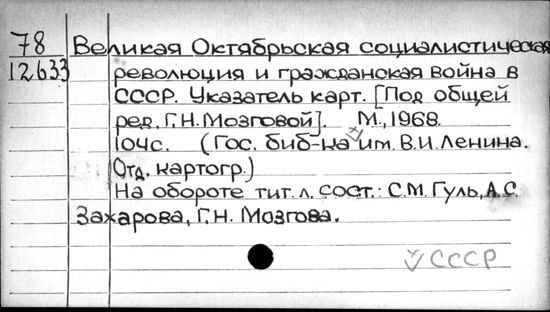 78 Великая Октябрьская социалистическая
12633 революция и гражданская война в
СССР. Указатель карт. [Под общей
ред. Г.Н. Мозговой]. М., 1968.
104с. (Гос. биб-ка им. В.И. Ленина.
Отд. картогр.)
На обороте тит. л. сост.: С.М. Гуль, А.С.
Захарова, Г.Н. Мозгова.
СССР